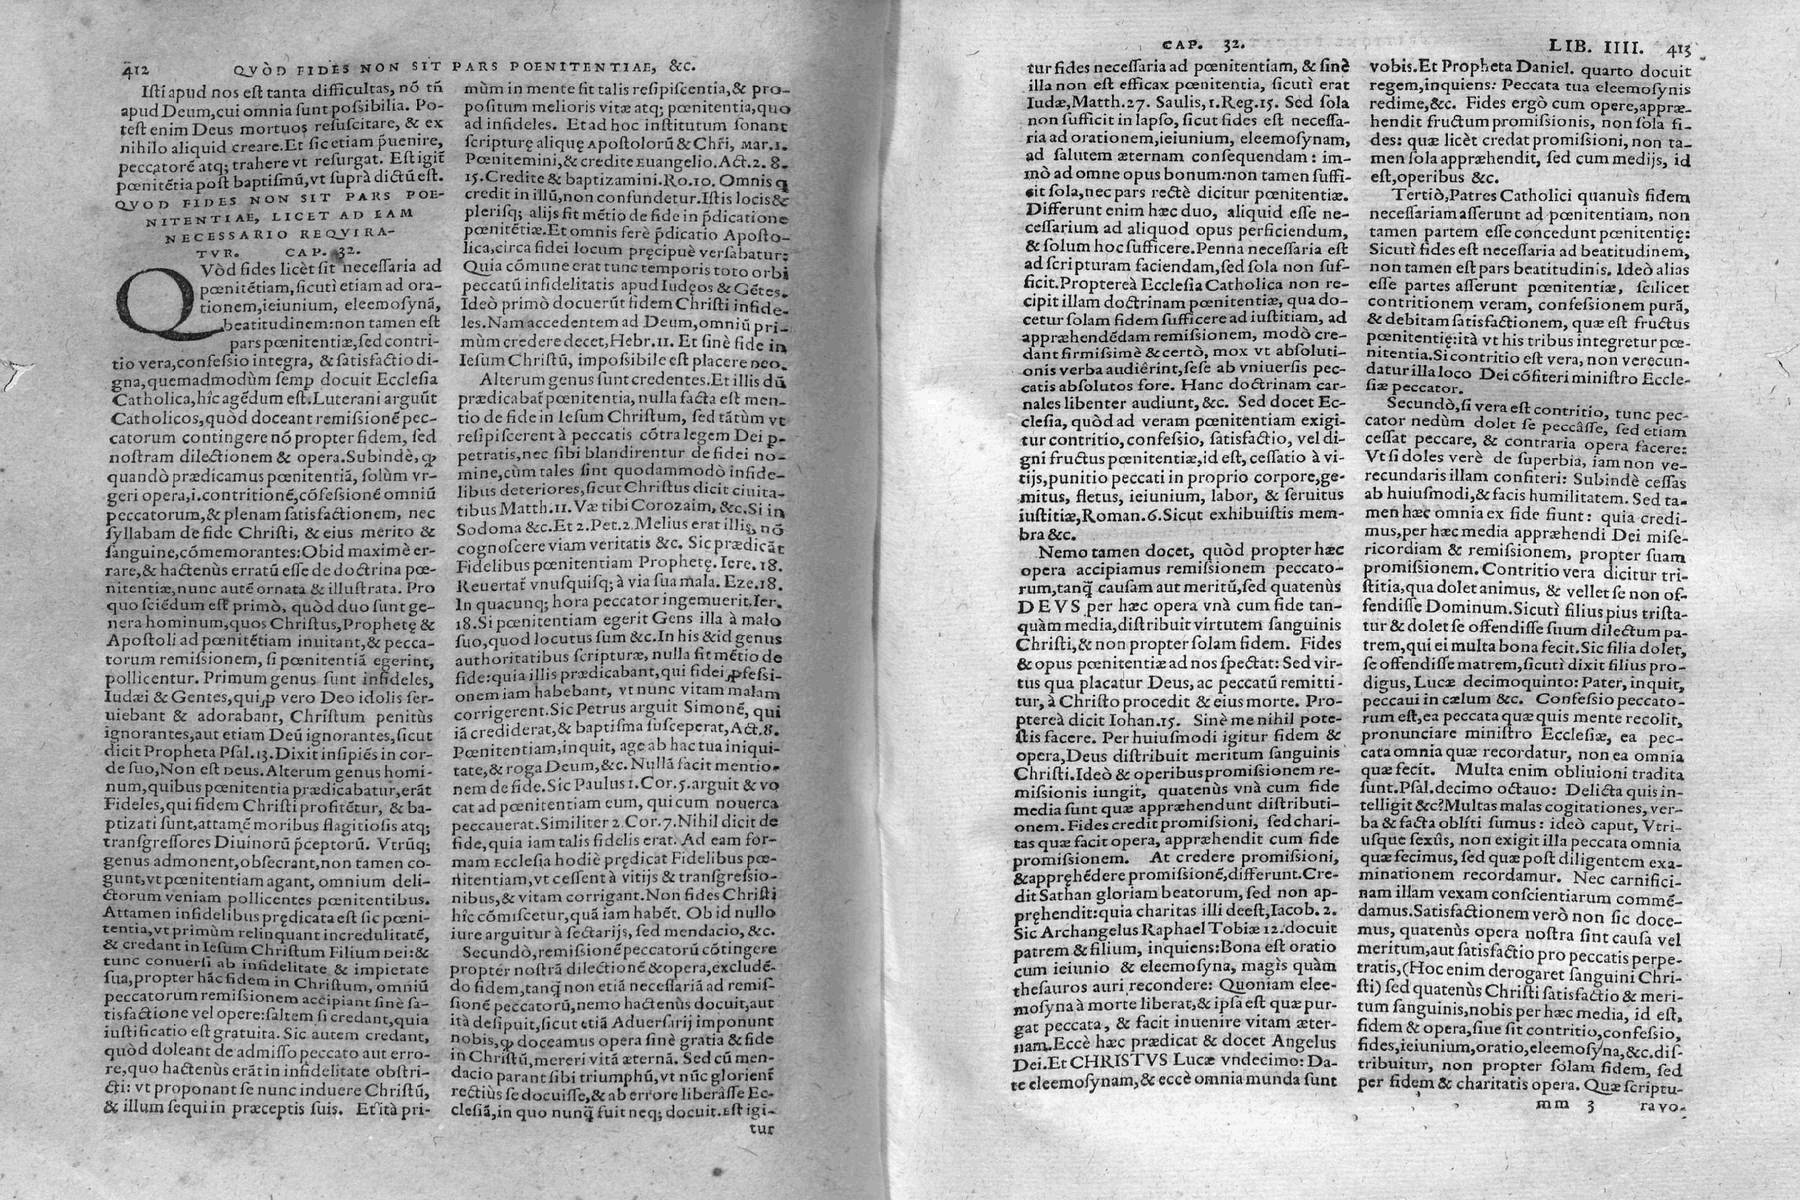 412 QVÒD FIDES NON SIT PARS POENITENTIAE, &c.
Isti apud nos est tanta difficultas, nõ tñ
apud Deum, cui omnia sunt possibilia. Po-
test enim Deus mortuos resuscitare, & ex
nihilo aliquid creare. Et sic etiam p̃uenire,
peccatorẽ atq; trahere vt resurgat. Est igit̃
pœnitẽtia post baptismũ, vt suprà dictũ est.
QVOD FIDES NON SIT PARS POE-
NITENTIAE, LICET AD EAM
NECESSARIO REQVIRA-
TVR. CAP. 32.
QVòd fides licèt sit necessaria ad
pœnitẽtiam, sicuti etiam ad ora-
tionem, ieiunium, eleemosynã,
beatitudinem: non tamen est
pars pœnitentiæ, sed contri-
tio vera, confessio integra, & satisfactio di-
gna, quemadmodùm semp docuit Ecclesia
Catholica, hîc agẽdum est. Luterani arguũt
Catholicos, quòd doceant remissionẽ pec-
catorum contingere nõ propter fidem, sed
nostram dilectionem & opera. Subindè, ꝙ
quandò prædicamus pœnitentiã, solùm vr-
geri opera, i. contritionẽ, cõfessionẽ omniũ
peccatorum, & plenam satisfactionem, nec
syllabam de fide Christi, & eius merito &
sanguine, cõmemorantes: Ob id maximè er-
rare, & hactenùs erratũ esse de doctrina pœ-
nitentiæ, nunc autẽ ornata & illustrata. Pro
quo sciẽdum est primò, quòd duo sunt ge-
nera hominum, quos Christus, Prophetę &
Apostoli ad pœnitẽtiam inuitant, & pecca-
torum remissionem, si pœnitentiã egerint,
pollicentur. Primum genus sunt infideles,
Iudæi & Gentes, qui ꝓ vero Deo idolis ser-
uiebant & adorabant, Christum penitùs
ignorantes, aut etiam Deũ ignorantes, sicut
dicit Propheta Psal. 13. Dixit insipiẽs in cor-
de suo, Non est Deus. Alterum genus homi-
num, quibus pœnitentia prædicabatur, erãt
Fideles, qui fidem Christi profitẽtur, & ba-
ptizati sunt, attamẽ moribus flagitiosis atq;
transgressores Diuinorũ p̃ceptorũ. Vtrũq;
genus admonent, obsecrant, non tamen co-
gunt, vt pœnitentiam agant, omnium deli-
ctorum veniam pollicentes pœnitentibus.
Attamen infidelibus prędicata est sic pœni-
tentia, vt primùm relinquant incredulitatẽ,
& credant in Iesum Christum Filium Dei: &
tunc conuersi ab infidelitate & impietate
sua, propter hãc fidem in Christum, omniũ
peccatorum remissionem accipiant sinè sa-
tisfactione vel opere: saltem si credant, quia
iustificatio est gratuita. Sic autem credant,
quòd doleant de admisso peccato aut erro-
re, quo hactenùs erãt in infidelitate obstri-
cti: vt proponant se nunc induere Christũ,
& illum sequi in præceptis suis. Et ità pri-
mùm in mente sit talis resipiscentia, & pro-
positum melioris vitæ atq; pœnitentia, quo
ad infideles. Et ad hoc institutum sonant
scripturę aliquę Apostolorũ & Chr̃i, Mar. 1.
Pœnitemini, & credite Euangelio. Act. 2. 8.
15. Credite & baptizamini. Ro. 10. Omnis q̃
credit in illũ, non confundetur. Istis locis &
plerisq; alijs fit mẽtio de fide in p̃dicatione
pœnitẽtiæ. Et omnis ferè p̃dicatio Aposto-
lica, circa fidei locum pręcipuè versabatur:
Quia cõmune erat tunc temporis toto orbi
peccatũ infidelitatis apud Iudęos & Gẽtes.
Ideò primò docuerũt fidem Christi infide-
les. Nam accedentem ad Deum, omniũ pri-
mùm credere decet, Hebr. 11. Et sinè fide in
Iesum Christũ, impossibile est placere Deo.
Alterum genus sunt credentes. Et illis dũ
prædicabat̃ pœnitentia, nulla facta est men-
tio de fide in Iesum Christum, sed tãtùm vt
resipiscerent à peccatis cõtra legem Dei p-
petratis, nec sibi blandirentur de fidei no-
mine, cùm tales sint quodammodò infide-
libus deteriores, sicut Christus dicit ciuita-
tibus Matth. 11. Væ tibi Corozaim, &c. Si in
Sodoma &c. Et 2. Pet. 2. Melius erat illis, nõ
cognoscere viam veritatis &c. Sic prædicãt
Fidelibus pœnitentiam Prophetę. Iere. 18.
Reuertat̃ vnusquisq; à via sua mala. Eze. 18.
In quacunq; hora peccator ingemuerit. Ier.
18. Si pœnitentiam egerit Gens illa à malo
suo, quod locutus sum &c. In his & id genus
authoritatibus scripturæ, nulla fit mẽtio de
fide: quia illis prædicabant, qui fidei ꝓfessi-
onem iam habebant, vt nunc vitam malam
corrigerent. Sic Petrus arguit Simonẽ, qui
iã crediderat, & baptisma susceperat, Act. 8.
Pœnitentiam, inquit, age ab hac tua iniqui-
tate, & roga Deum, &c. Nullã facit mentio-
nem de fide. Sic Paulus 1. Cor. 5. arguit & vo
cat ad pœnitentiam eum, qui cum nouerca
peccauerat. Similiter 2. Cor. 7. Nihil dicit de
fide, quia iam talis fidelis erat. Ad eam for-
mam Ecclesia hodiè prędicat Fidelibus pœ-
nitentiam, vt cessent à vitijs & transgressio-
nibus, & vitam corrigant. Non fides Christi
hîc cõmiscetur, quã iam habẽt. Ob id nullo
iure arguitur à sectarijs, sed mendacio, &c.
Secundò, remissionẽ peccatorũ cõtingere
proptèr nostrã dilectionẽ & opera, excludẽ-
do fidem, tanq̃ non etiã necessariã ad remis-
sionẽ peccatorũ, nemo hactenùs docuit, aut
ità desipuit, sicut etiã Aduersarij imponunt
nobis, ꝙ doceamus opera sinè gratia & fide
in Christũ, mereri vitã æternã. Sed cũ men-
dacio parant sibi triumphũ, vt nũc glorient̃
rectiùs se docuisse, & ab errore liberâsse Ec-
clesiã, in quo nunq̃ fuit neq; docuit. Est igi-
tur
CAP. 32. LIB. IIII. 413
tur fides necessaria ad pœnitentiam, & sinè
illa non est efficax pœnitentia, sicuti erat
Iudæ, Matth. 27. Saulis, 1. Reg. 15. Sed sola
non sufficit in lapso, sicut fides est necessa-
ria ad orationem, ieiunium, eleemosynam,
ad salutem æternam consequendam: im-
mò ad omne opus bonum: non tamen suffi-
cit sola, nec pars rectè dicitur pœnitentiæ.
Differunt enim hæc duo, aliquid esse ne-
cessarium ad aliquod opus perficiendum,
& solum hoc sufficere. Penna necessaria est
ad scripturam faciendam, sed sola non suf-
ficit. Proptereà Ecclesia Catholica non re-
cipit illam doctrinam pœnitentiæ, qua do-
cetur solam fidem sufficere ad iustitiam, ad
appræhendẽdam remissionem, modò cre-
dant firmissimè & certò, mox vt absoluti-
onis verba audiêrint, sese ab vniuersis pec-
catis absolutos fore. Hanc doctrinam car-
nales libenter audiunt, &c. Sed docet Ec-
clesia, quòd ad veram pœnitentiam exigi-
tur contritio, confessio, satisfactio, vel di-
gni fructus pœnitentiæ, id est, cessatio à vi-
tijs, punitio peccati in proprio corpore, ge-
mitus, fletus, ieiunium, labor, & seruitus
iustitiæ, Roman. 6. Sicut exhibuistis mem-
bra &c.
Nemo tamen docet, quòd propter hæc
opera accipiamus remissionem peccato-
rum, tanq̃ causam aut meritũ, sed quatenùs
DEVS per hæc opera vnà cum fide tan-
quàm media, distribuit virtutem sanguinis
Christi, & non propter solam fidem. Fides
& opus pœnitentiæ ad nos spectat: Sed vir-
tus qua placatur Deus, ac peccatũ remitti-
tur, à Christo procedit & eius morte. Pro-
ptereà dicit Iohan. 15. Sinè me nihil pote-
stis facere. Per huiusmodi igitur fidem &
opera, Deus distribuit meritum sanguinis
Christi. Ideò & operibus promissionem re-
missionis iungit, quatenùs vnà cum fide
media sunt quæ appræhendunt distributi-
onem. Fides credit promissioni, sed chari-
tas quæ facit opera, appræhendit cum fide
promissionem. At credere promissioni,
& appręhẽdere promissionẽ, differunt. Cre-
dit Sathan gloriam beatorum, sed non ap-
pręhendit: quia charitas illi deest, Iacob. 2.
Sic Archangelus Raphael Tobiæ 12. docuit
patrem & filium, inquiens: Bona est oratio
cum ieiunio & eleemosyna, magìs quàm
thesauros auri recondere: Quoniam elee-
mosyna à morte liberat, & ipsa est quæ pur-
gat peccata, & facit inuenire vitam æter-
nam. Eccè hæc prædicat & docet Angelus
Dei. Et CHRISTVS Lucæ vndecimo: Da-
te eleemosynam, & eccè omnia munda sunt
vobis. Et Propheta Daniel. quarto docuit
regem, inquiens: Peccata tua eleemosynis
redime, &c. Fides ergò cum opere, appræ-
hendit fructum promissionis, non sola fi-
des: quæ licèt credat promissioni, non ta-
men sola appræhendit, sed cum medijs, id
est, operibus &c.
Tertiò, Patres Catholici quanuìs fidem
necessariam asserunt ad pœnitentiam, non
tamen partem esse concedunt pœnitentię:
Sicutì fides est necessaria ad beatitudinem,
non tamen est pars beatitudinis. Ideò alias
esse partes asserunt pœnitentiæ, scilicet
contritionem veram, confessionem purã,
& debitam satisfactionem, quæ est fructus
pœnitentię: ità vt his tribus integretur pœ-
nitentia. Si contritio est vera, non verecun-
datur illa loco Dei cõfiteri ministro Eccle-
siæ peccator.
Secundò, si vera est contritio, tunc pec-
cator nedùm dolet se peccâsse, sed etiam
cessat peccare, & contraria opera facere:
Vt si doles verè de superbia, iam non ve-
recundaris illam confiteri: Subindè cessas
ab huiusmodi, & facis humilitatem. Sed ta-
men hæc omnia ex fide fiunt: quia credi-
mus, per hæc media apprœhendi Dei mise-
ricordiam & remissionem, propter suam
promissionem. Contritio vera dicitur tri-
stitia, qua dolet animus, & vellet se non of-
fendisse Dominum. Sicutì filius pius trista-
tur & dolet se offendisse suum dilectum pa-
trem, qui ei multa bona fecit. Sic filia dolet,
se offendisse matrem, sicutì dixit filius pro-
digus, Lucæ decimoquinto: Pater, inquit,
peccaui in cælum &c. Confessio peccato-
rum est, ea peccata quæ quis mente recolit,
pronunciare ministro Ecclesiæ, ea pec-
cata omnia quæ recordatur, non ea omnia
quæ fecit. Multa enim obliuioni tradita
sunt. Psal. decimo octauo: Delicta quis in-
telligit &c? Multas malas cogitationes, ver-
ba & facta oblíti sumus: ideò caput, Vtri-
usque sexûs, non exigit illa peccata omnia
quæ fecimus, sed quæ post diligentem exa-
minationem recordamur. Nec carnifici-
nam illam vexam conscientiarum commẽ-
damus. Satisfactionem verò non sic doce-
mus, quatenùs opera nostra sint causa vel
meritum, aut satisfactio pro peccatis perpe-
tratis, (Hoc enim derogaret sanguini Chri-
sti) sed quatenùs Christi satisfactio & meri-
tum sanguinis, nobis per hæc media, id est,
fidem & opera, siue sit contritio, confessio,
fides, ieiunium, oratio, eleemosyna, &c. dis-
tribuitur, non propter solam fidem, sed
per fidem & charitatis opera. Quæ scriptu-
mm 3 ra vo-